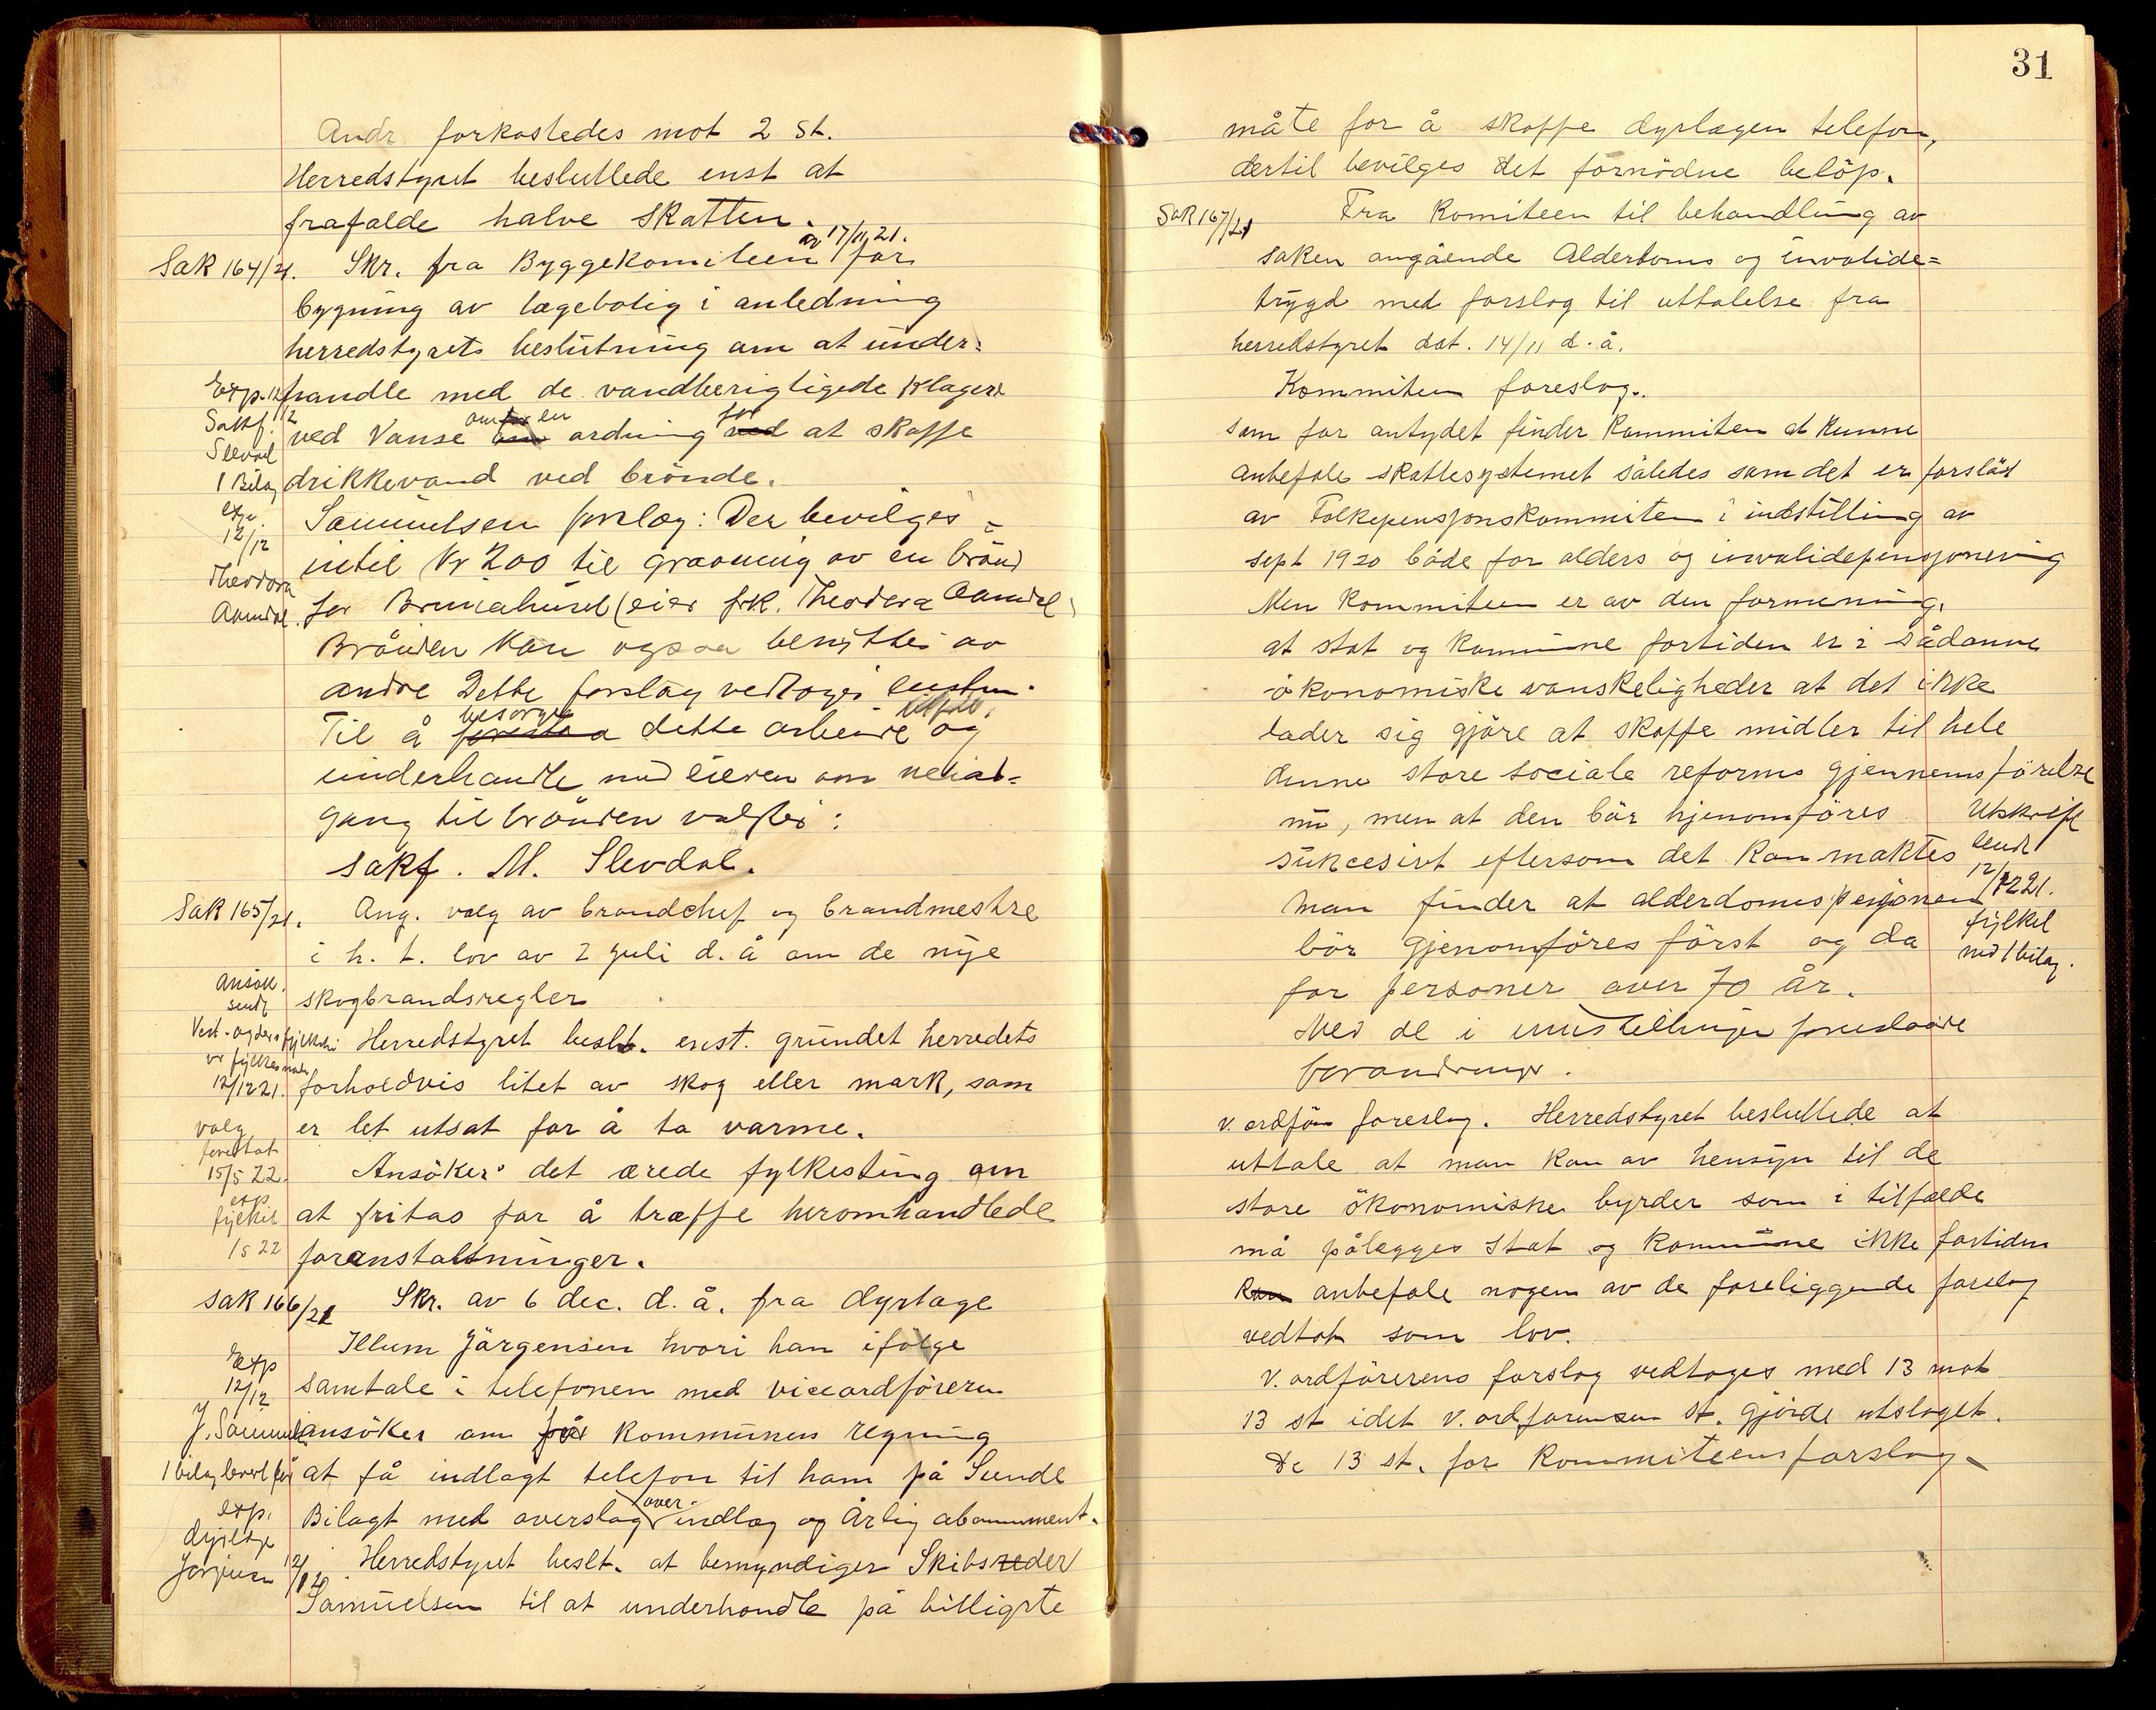 Andr forkastedes mot 2 st.
Herredstyret besluttede enst at
frafalde halve skatten.
av 17/11 21.
Sak 164/21. Skr. fra Byggekomiteen for
bygning av lægebolig i anledning
herredstyrets beslutning om at under=
Exp. 12/12 handle med de vandberigtigede klagere
Sakf.
om en for
ved Vanse om ordning ved at skaffe
Slevdal
1 Bilag drikkevand ved brönde.
exp.
12/12
Samuelsen forslag: Der bevilges
intil Kr 200 til gravning av en brönd
Theodora
Aamdal. for Bruuahuset (eier frk. Theodora Aamdal
Brönden kan ogsaa benyttes av
andre Dette forslag vedtoges enstem.
besörge
Til å forestaa dette arbeide og
underhandle med eieren om
gang til brönden valgtes:
sakf. M. Slevdal.
Sak 165/21. Ang. valg av brandchef og brandmestre
i h. t. lov av 2 juli d. å om de nye
Ansök.
sendt skogbrandsregler
Vest-Agders fylkesti Herredstyret beslt. enst. grundet herredets
v fylkesmann
12/12 21. forholdvis litet av skog eller mark, som
valg er let utsat for å ta varme.
foretat
15/5 22. Ansöker det ærede fylkesting om
exp.
fylket at fritas for å træffe heromhandlede
15 22 foranstaltninger.
Sak 166/21 Skr. av 6 dec. d. å. fra dyrlæge
Illum Jörgensen hvori han ifölge
Exp
12/12 samtale i telefonen med viceordföreren
J. Samuels ansöker om for kommunens regning
1 bilag levert at få indlagt telefon til ham på Sunde
over
exp. Bilagt med overslag indlæg og Årlig abonnement.
dyrlæge
Jörgensen 12/12 Herredstyret beslt. at bemyndiger Skibsreder
Samuelsen til at underhandle på billigste
31
måte for å skaffe dyrlægen telefon,
dertil bevilges det fornödne belöp.
Sak 167/21 Fra Komiteen til behandling av
saken angående Alderdoms og invalide=
trygd med forslag til uttalelse fra
herredstyret dat. 14/11 d. å.
Kommiteen foreslog..
som for antydet finder Kommiten at kunne
anbefale skattesystemet således som det er forslåt
av Folkepensjonskommiten i indstilling av
sept 1920 både for alders og invalidepensjonering
Men Kommiteen er av den formening,
at stat og kommune fortiden er i sådanne
ökonomiske vanskeligheder at det ikke
lader sig gjöre at skaffe midler til hele
denne store sociale reforms gjennemsförelse
nu, men at den bör hjenomföres Utskrift
sukcesivt eftersom det kan maktes sendt
12/12 21.
Man finder at alderdomspensjonen
bör gjenomföres först og da fylket
med 1 bilag.
for personer over 70 år.
Med de i innstillingen foreslaaede
forandringer.
v. ordför foreslog. Herredstyret besluttede at
uttale at man kan av hensyn til de
store ökonomiske byrder som i tilfælde
må pålægges stat og kommune ikke fortiden
kan anbefale nogen av de foreliggende forslag
vedtat som lov.
V. ordförerens forslag vedtoges med 13 mot
13 st idet v. ordförerens st. gjorde utslaget.
De 13 st. for kommiteens forslag.